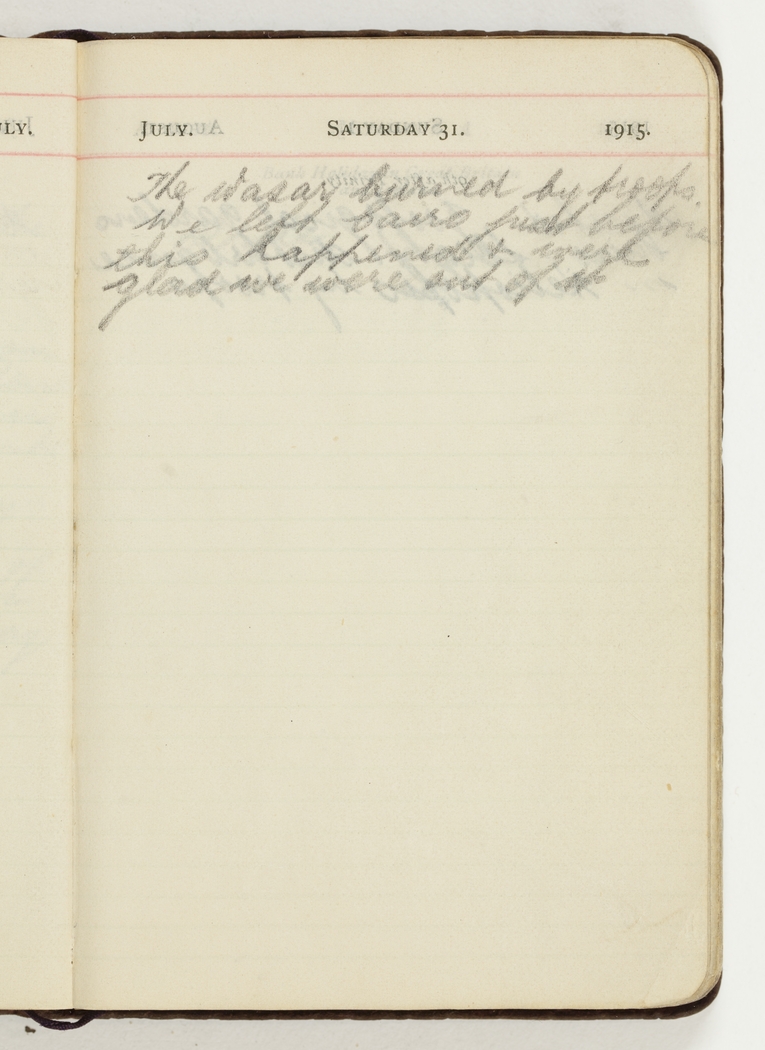 ULY.
JULY. SATURDAY 31. 1915.
The Wasar burned by troops.
We left Cairo just before
this happened & were
glad we were out of it